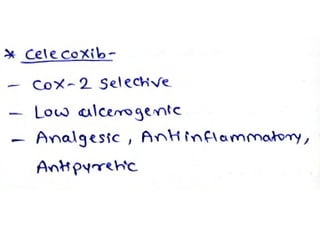 * Celecoxib-
- COX-2 Selective
- Low ulcerogenic
- Analgesic, Antiinflammatory,
Antipyretic